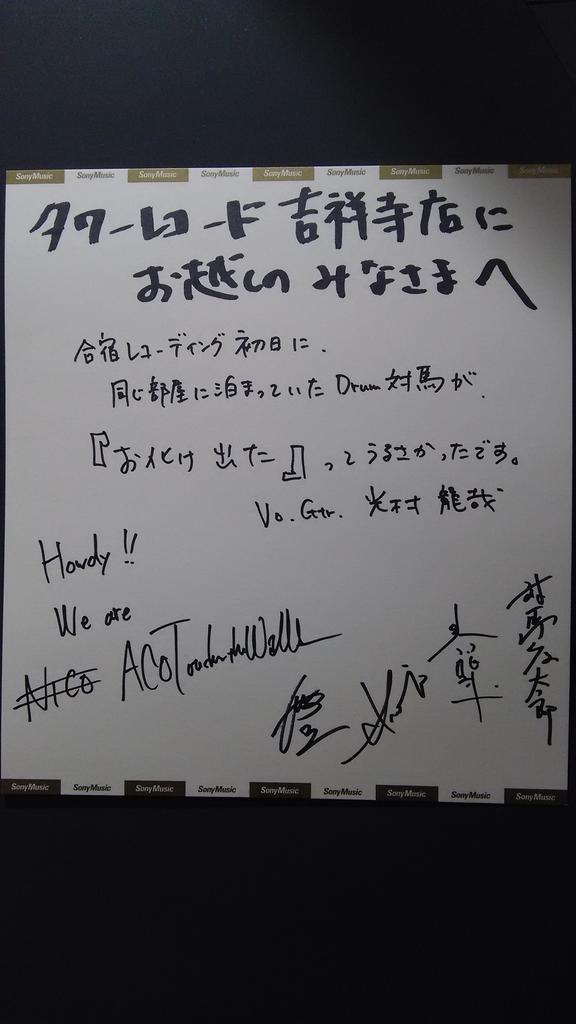 SonyMusic SonyMusic SonyMusic SonyMusic SonyMusic SonyMusic SonyMusic SonyMusic SonyMusic
タワーレコード 吉祥寺店に
お越しの みなさまへ
合宿レコーディング 初日に、
同じ部屋に泊まっていた Drum 対馬が、
『お化け 出た』ってうるさかったです。
Vo. Gtr. 光村 龍哉
Howdy!!
We are
NICO ACOTouchestheWalls
対馬祥太郎
SonyMusic SonyMusic SonyMusic SonyMusic SonyMusic SonyMusic SonyMusic SonyMusic SonyMusic